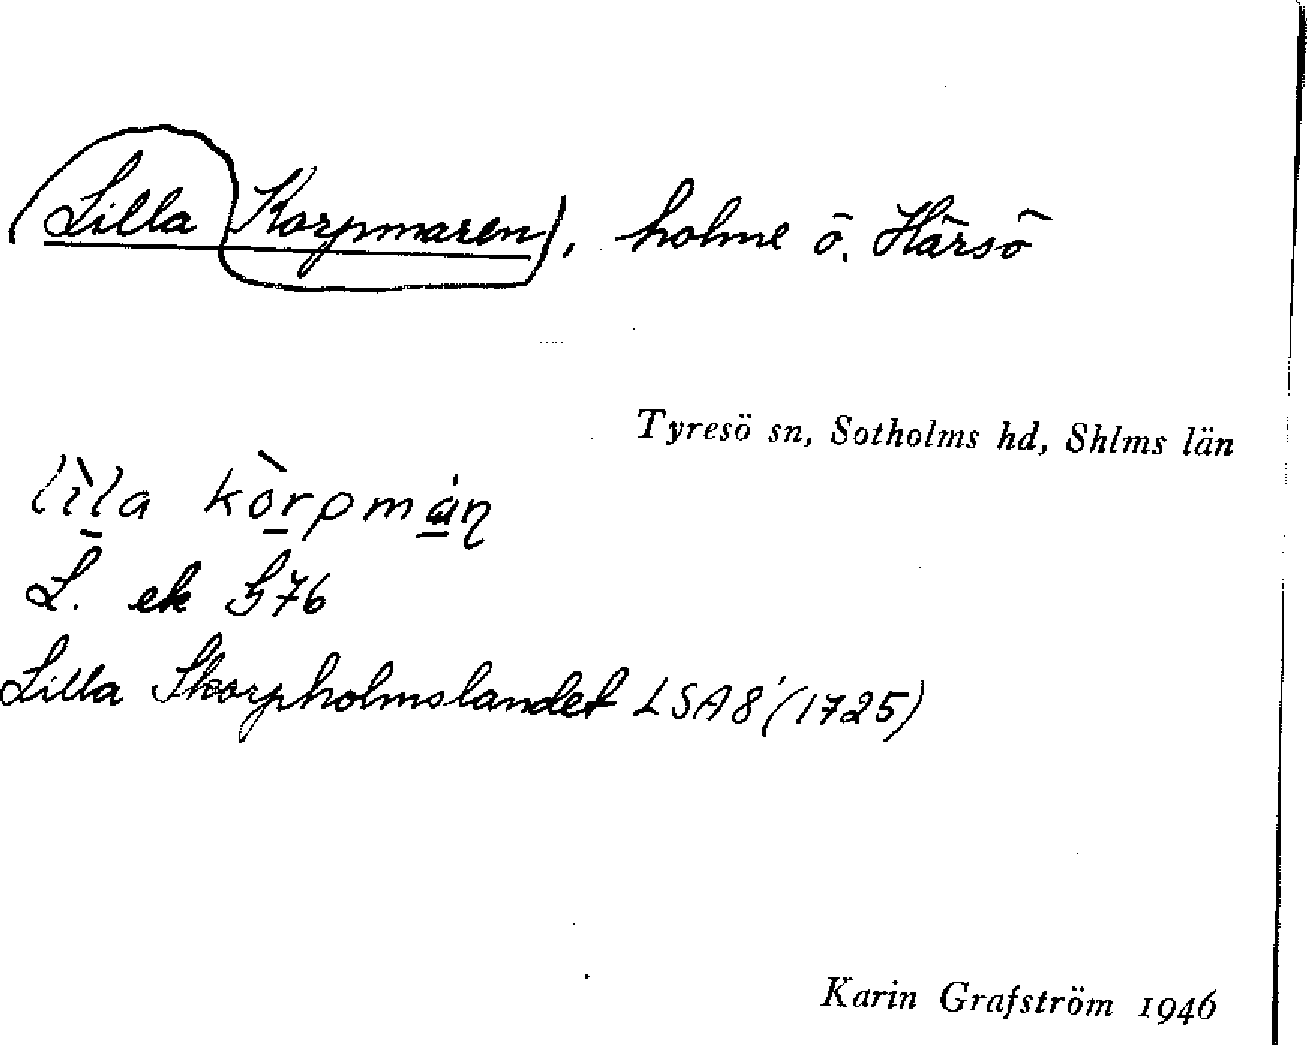 (Lilla Korpmaren), holme ö. Härsö
Tyresö sn, Sotholms hd, Shlms län
lìla kòrpmáɳ
L. ek 576
Lilla Skorpholmslandet LSA8 (1725)
Karin Grafström 1946